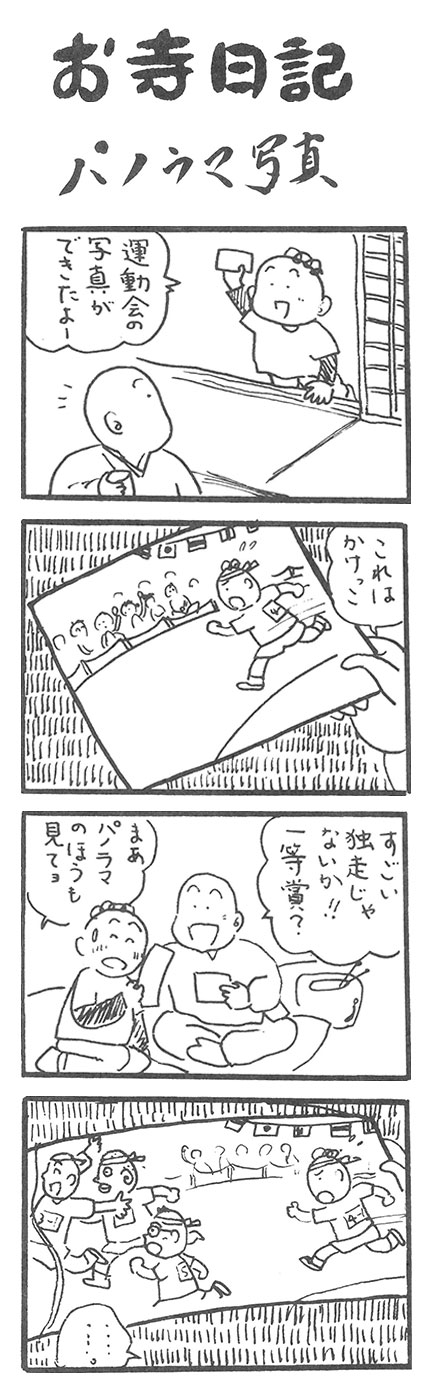 お寺日記
パノラマ写真
運動会の
写真が
できたよー
これは
かけっこ
すごい
独走じゃ
ないか!!
一等賞?
まあ
パノラマ
のほうも
見てョ
……